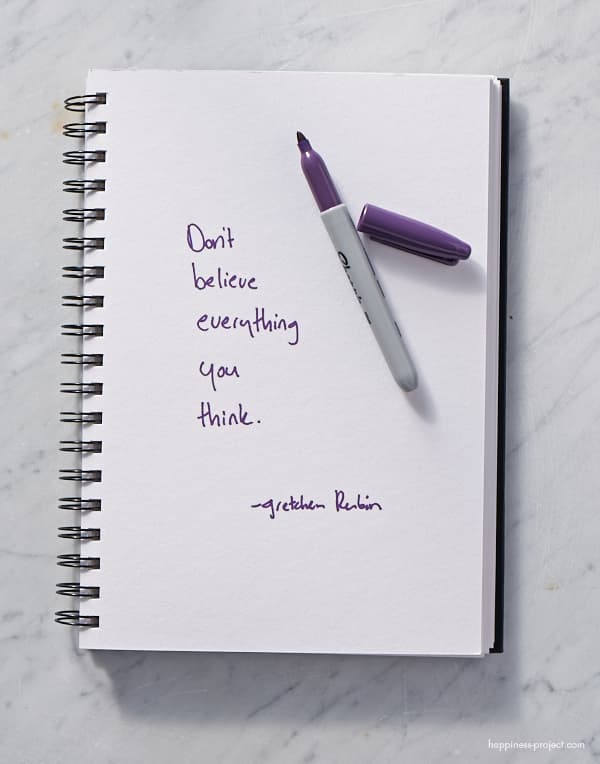 Don't
believe
everything
you
think.
-gretchen Rubin
Sharpie
happiness-project.com